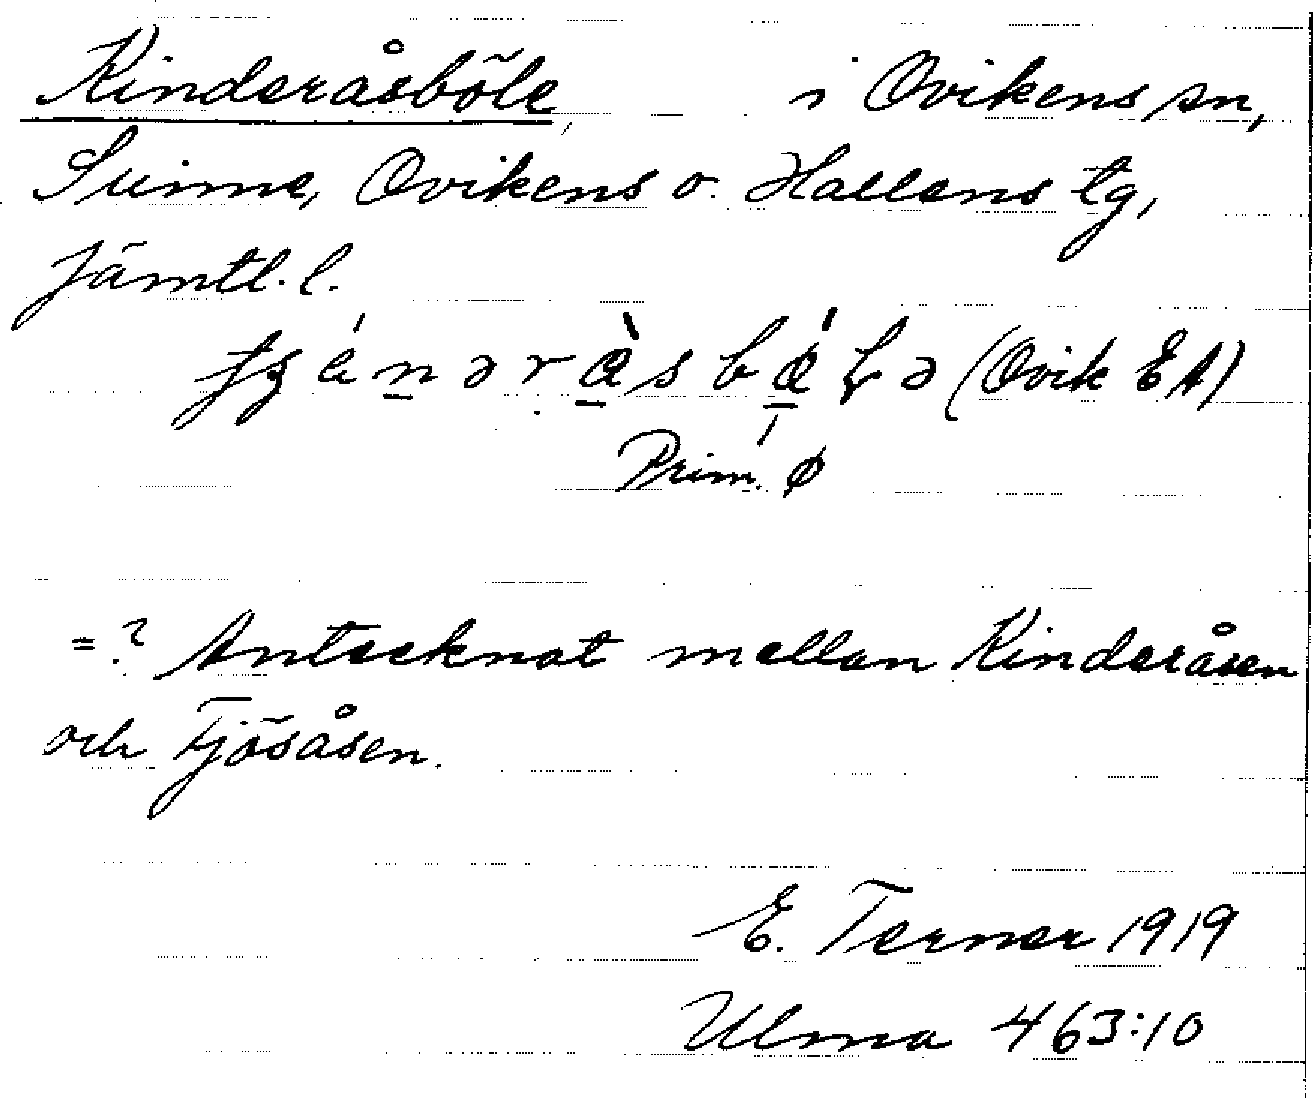 Kinderåsböle i Ovikens sn,
Sunne, Ovikens o. Hallens tg,
Jämtl. l.
(Ovik EA)
Prim. ø
=? Antecknat mellan Kinderåsen
och Fjösåsen.
E. Terner 1919
Ulma 463:10